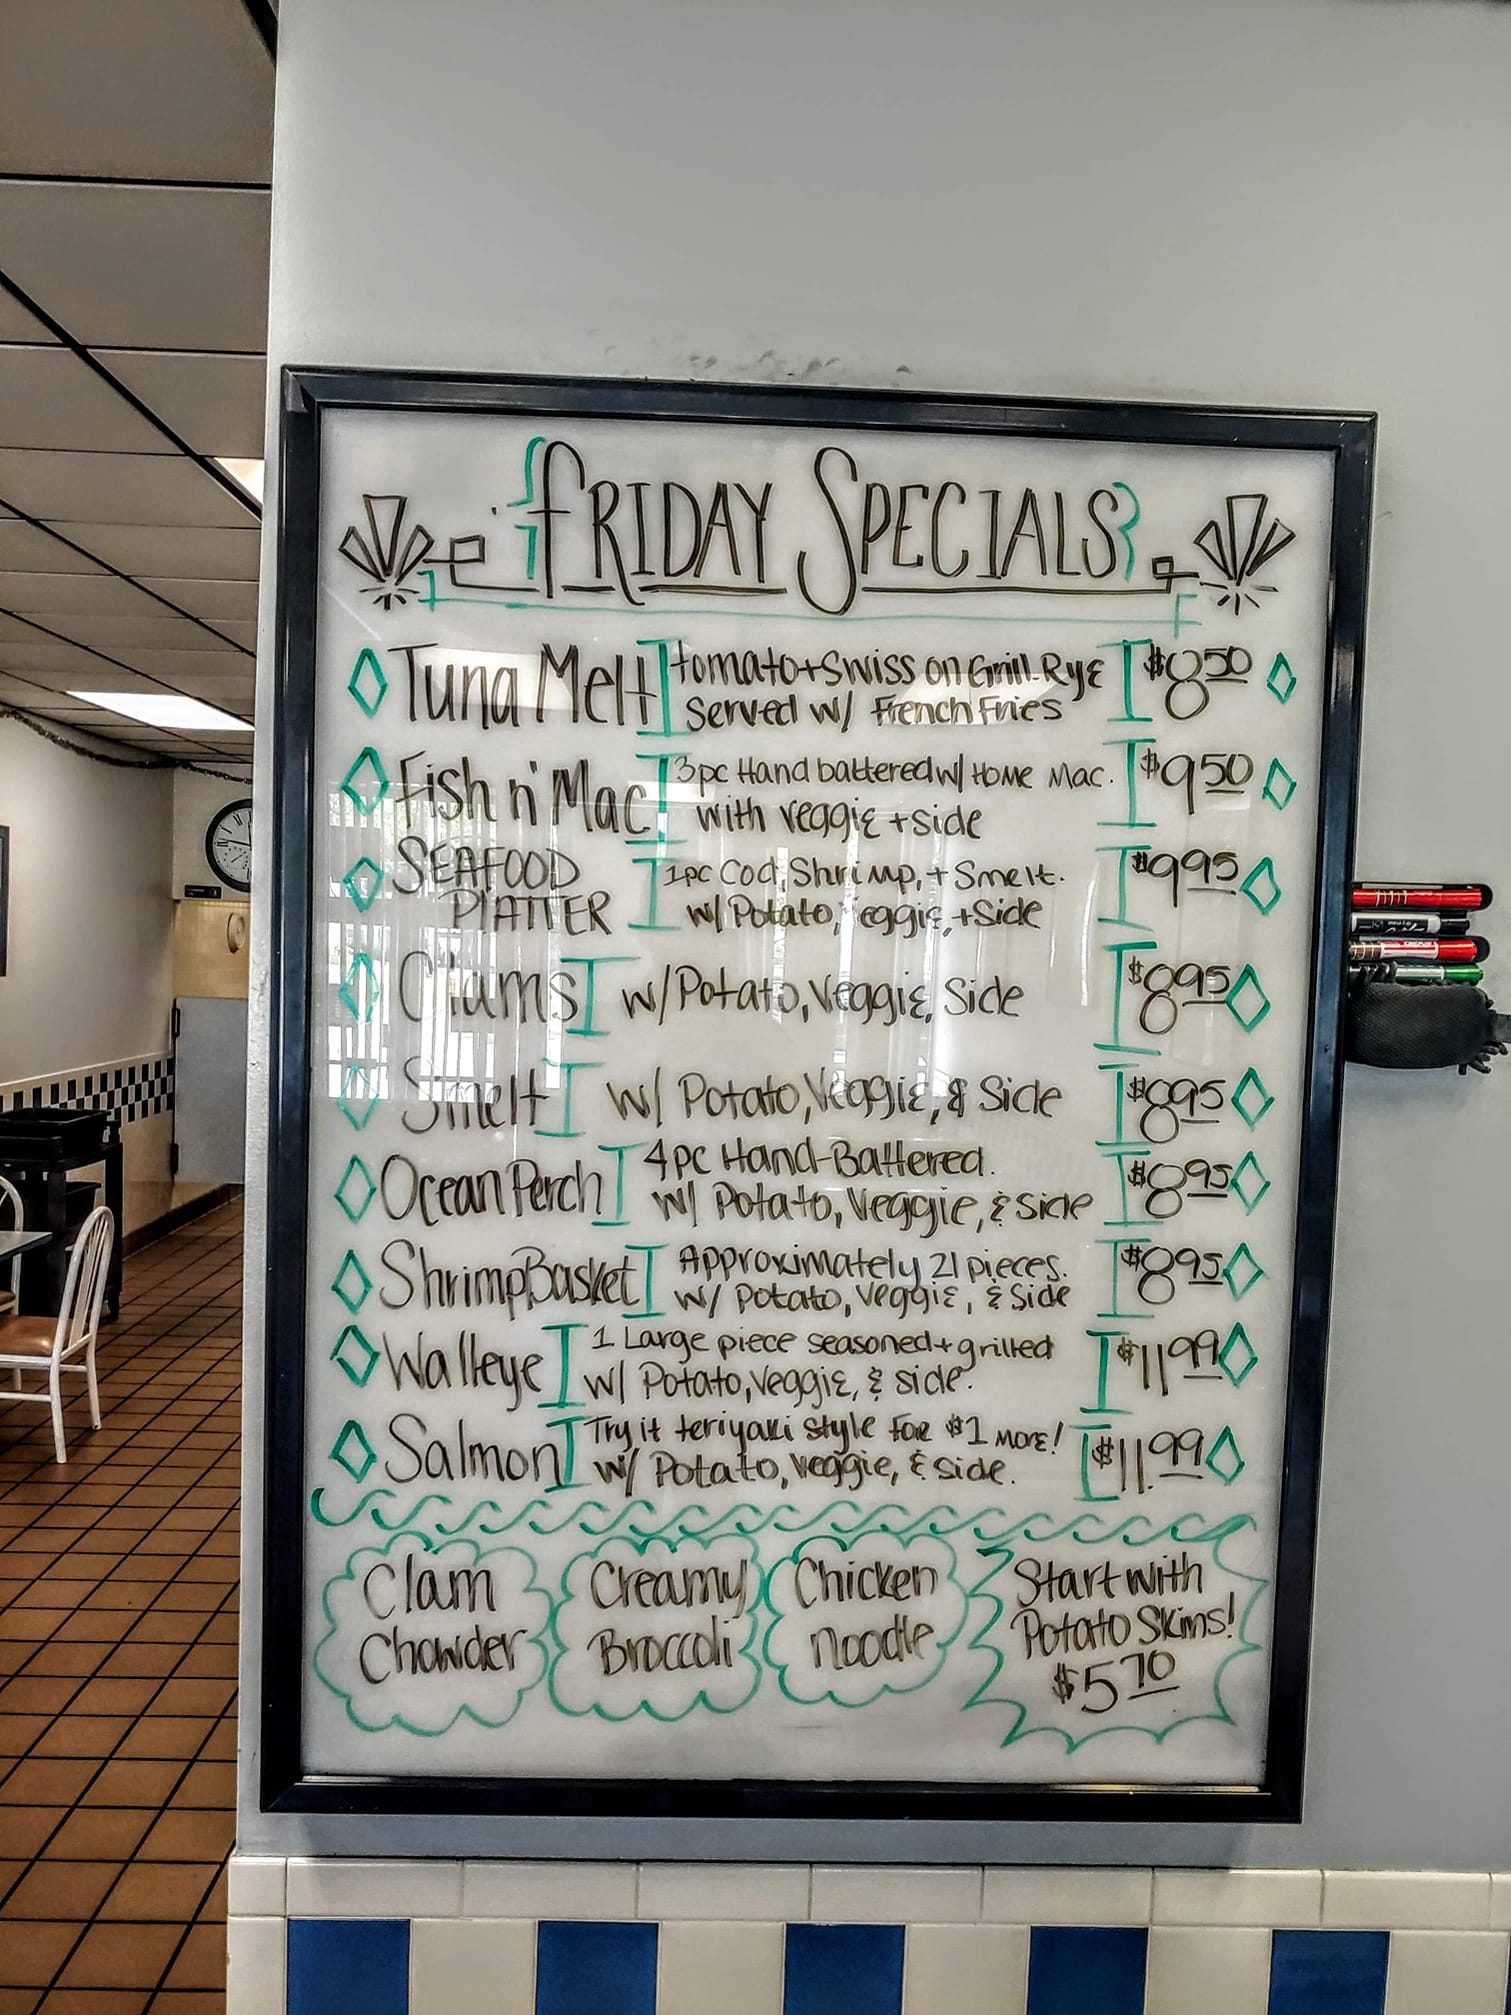 Friday Specials
Tuna Melt tomato + Swiss on Grill-Rye $8.50
Served w/ French Fries
Fish n' Mac 3pc Hand battered w/ Home Mac. $9.50
with veggie + side
Seafood 1pc Cod, Shrimp, + Smelt. $9.95
Platter w/ Potato, Veggie, + Side
Clams w/ Potato, Veggie, Side $8.95
Smelt w/ Potato, Veggie, & Side $8.95
Ocean Perch 4pc Hand-Battered. $8.95
w/ Potato, Veggie, & side
Shrimp Basket Approximately 21 pieces. $8.95
w/ Potato, Veggie, & side
Walleye 1 Large piece seasoned + grilled $11.99
w/ Potato, Veggie, & side.
Salmon Try it teriyaki style for $1 more! $11.99
w/ Potato, Veggie, & side.
Clam
Chowder
Creamy
Broccoli
Chicken
Noodle
Start with
Potato Skins!
$5.70